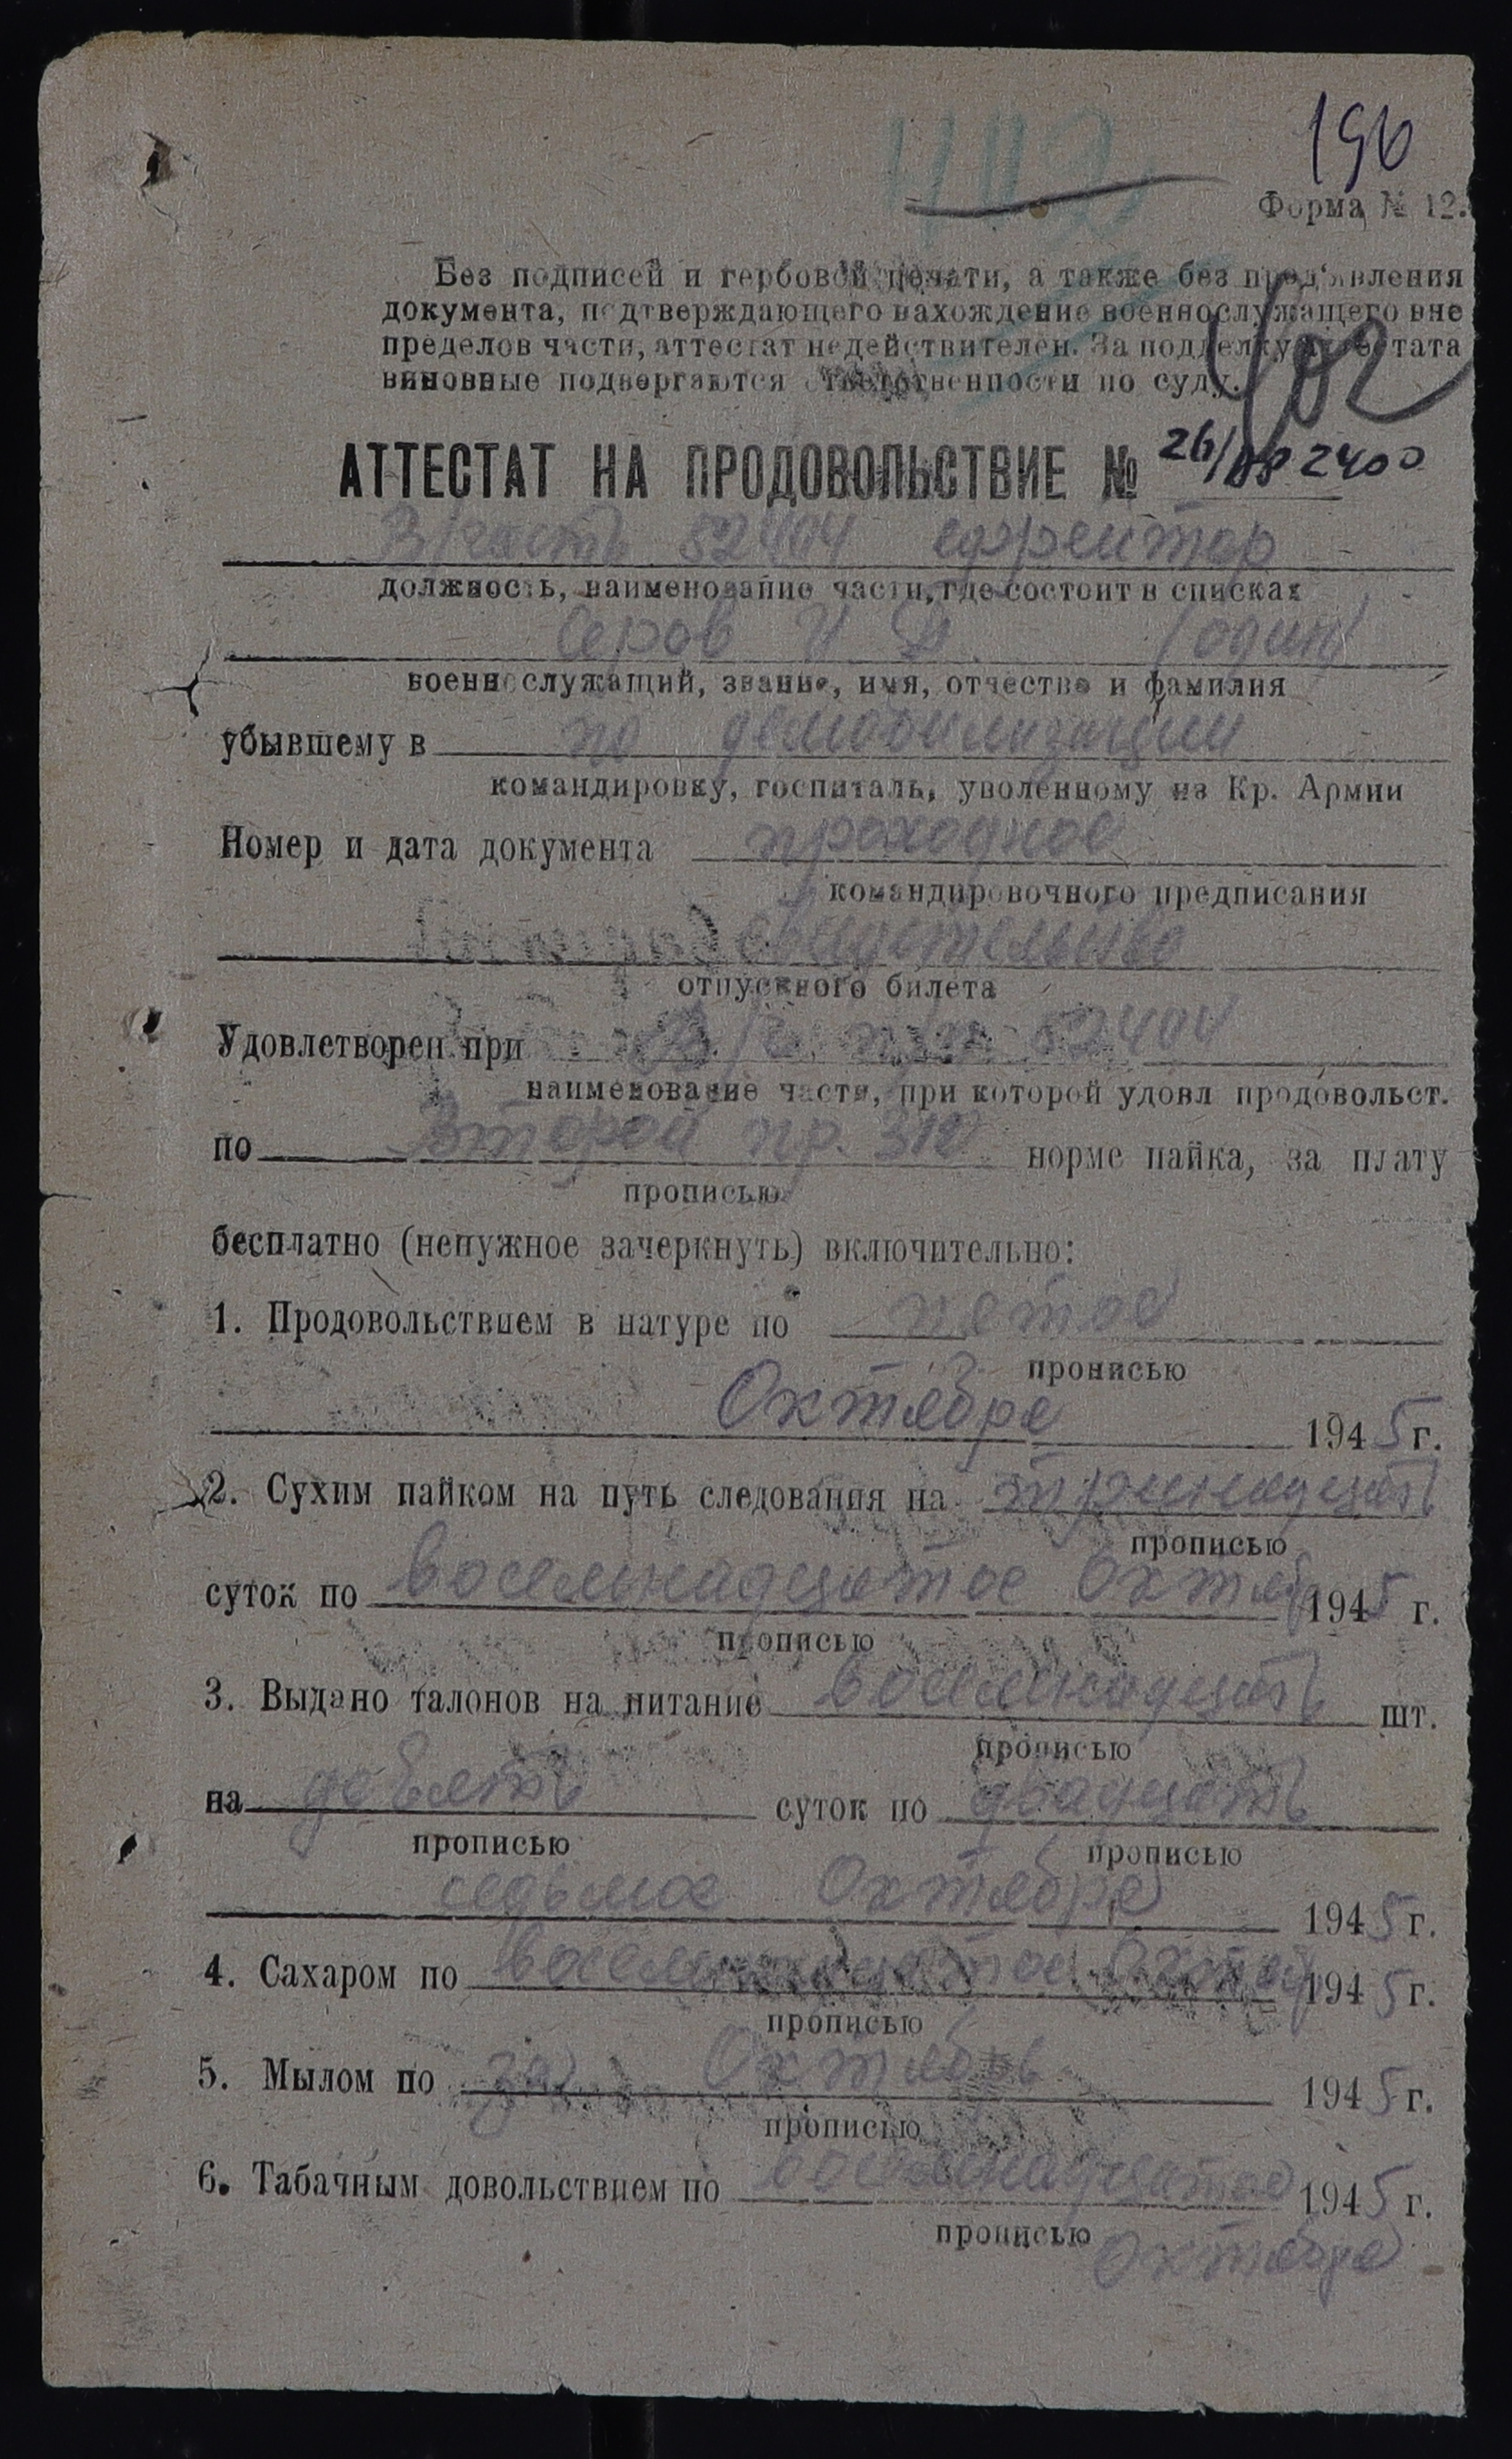 196
Форма № 12.
Без подписей и гербовой печати, а также без пред'явления
документа, подтверждающего нахождение военнослужащего вне
пределов части, аттестат недействителен. За подделку аттестата
виновные подвергаются ответственности по суду.
АТТЕСТАТ НА ПРОДОВОЛЬСТВИЕ № 26/
2400
В/часть 52404 ефрейтор
должность, наименование части, где состоит в списках
Серов И Д (один)
военнослужащий, звание, имя, отчество и фамилия
убывшему в по демобилизации
командировку, госпиталь, уволенному из Кр. Армии
Номер и дата документа проходное
командировочного предписания
свидетельство
отпускного билета
Удовлетворен при В/ч п/п 52404
наименование части, при которой удовл продовольст.
по Второй пр. 312 норме пайка, за плату
прописью
бесплатно (ненужное зачеркнуть) включительно:
1. Продовольствием в натуре по пятое
прописью
Октября 1945 г.
2. Сухим пайком на путь следования на тринадцать
прописью
суток по восемьнадцатое Октяб 1945 г.
прописью
3. Выдано талонов на питание восемнадцать шт.
прописью
на девять суток по двадцать
прописью прописью
седьмое Октября 1945 г.
4. Сахаром по восемнадцатое Октяб 1945 г.
прописью
5. Мылом по за Октябрь 1945 г.
прописью
6. Табачным довольствием по восемьнадцатое 1945 г.
прописью Октября